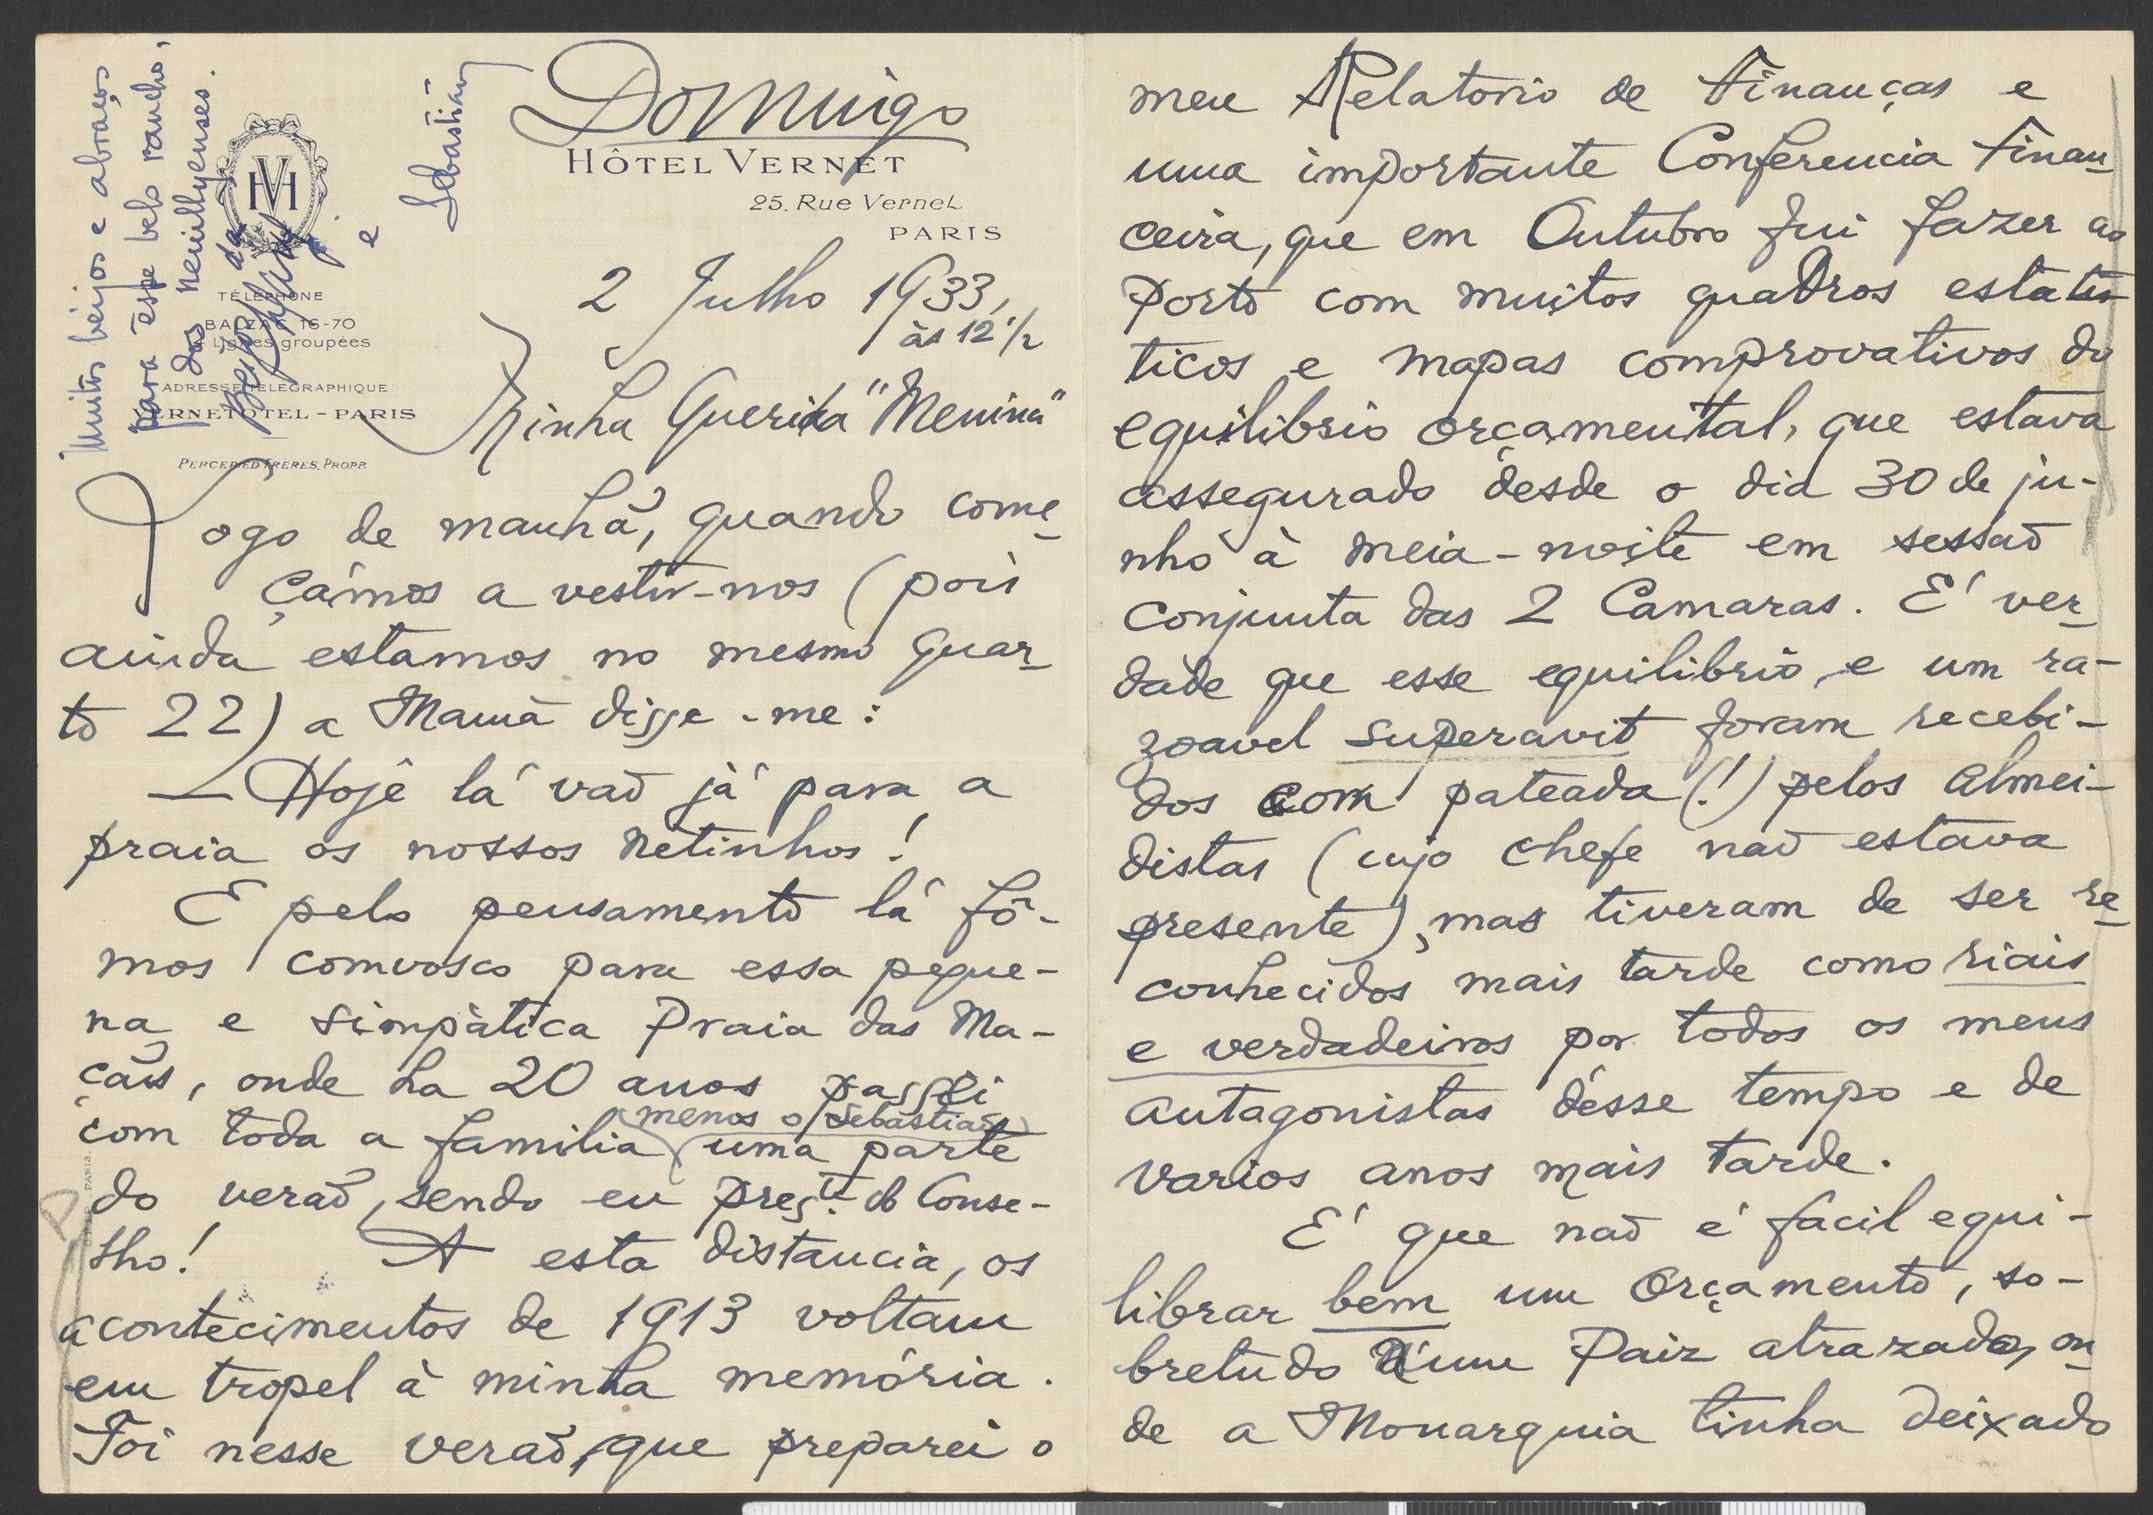 Domingo
HÔTEL VERNET
25, Rue Vernet
PARIS
TÉLÉPHONE
BALZAC 16-70
Lignes groupées
ADRESSE TÉLÉGRAPHIQUE
VERNETOTEL - PARIS
PERCEPIED FRÈRES, PROPR
Muitos beijos e abraços
para êsse belo rancho,
dos neuillyenses.
e
Sebastião
2 Julho 1933,
às 12 1/2
Minha Querida "Menina"
Logo de manhã, quando come-
çámos a vestir-nos (pois
ainda estamos no mesmo quar-
to 22) a Mamã disse-me:
— Hoje lá vaõ já para a
praia os nossos netinhos!
E pelo pensamento lá fô-
mos comvosco para essa peque-
na e simpàtica Praia das Ma-
çãs, onde ha 20 anos passei
com toda a familia (menos o Sebastiaõ) uma parte
do veraõ, sendo eu Preste. do Conse-
lho! A esta distancia, os
acontecimentos de 1913 voltam
em tropel à minha memória.
Foi nesse veraõ, que preparei o
meu Relatorio de Finanças e
uma importante Conferencia Finan-
ceira, que em Outubro fui fazer ao
Porto com muitos quadros estatis-
ticos e mapas comprovativos do
equilibrio orçamental, que estava
assegurado desde o dia 30 de ju-
nho à meia-noite em sessaõ
conjunta das 2 Camaras. E' ver-
dade que esse equilibrio e um ra-
zoavel superavit foram recebi-
dos com pateada (!) pelos Almei-
distas (cujo chefe naõ estava
presente), mas tiveram de ser re-
conhecidos mais tarde como riais
e verdadeiros por todos os meus
antagonistas dêsse tempo e de
varios anos mais tarde.
E' que naõ é fácil equi-
librar bem um Orçamento, so-
bretudo n'um Paiz atrazado, on-
de a Monarquia tinha deixado